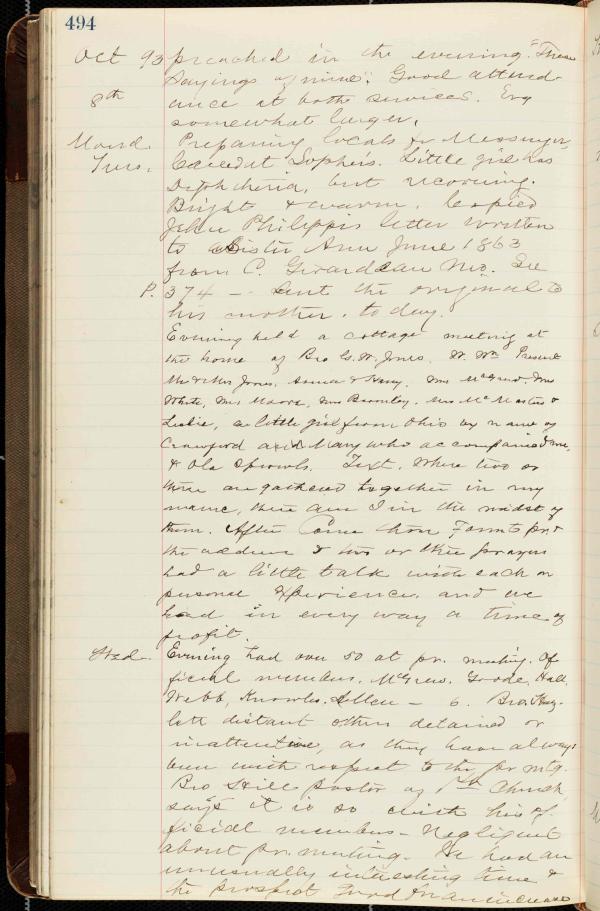 494
Oct 93 preached in the evening. "These
sayings of mine". Good attend-
8th ance at both services. Evg
somewhat larger.
Mond. Preparing locals for Messenger.
Tues. Called at Sophie's. Little girl has
Diphtheria, but recovering.
Bright & warm. Copied
John Philippis letter written
to Sister Ann June 1863
from C. Girardeau Mo. See
P. 374 — Sent the original to
his mother, to day.
Evening held a cottage meeting at
the home of Bro G. W. Jones. Present
Mr & Mrs Jones, & Harry, Mrs McGrew, Mrs
White, Mrs Moore, Mrs Bromley, Mrs McMasters &
Leslie, a little girl from Ohio by name of
Crawford and Mary who accompanied me,
& Ola Sprowls. Text. Where two or
three are gathered together in my
name, there am I in the midst of
them. After Come thou Fount &
the address & two or three prayers
had a little talk with each on
personal experience, and we
had in every way a time of
profit.
Wed. Evening had over 50 at pr. meeting. Of
ficial members, McGrew, Goode, Hall,
Webb, Knowles, Allen — 6. Bro.
left distant others detained or
inattentive, as they have always
been with respect to the pr mtg.
Bro Hill pastor of 1st Church
says it is so with his of-
ficial members — Negligent
about pr. meeting. We had an
unusually interesting time &
the prospect for an increase